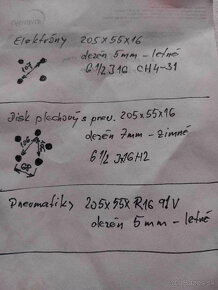 Elektróny 205x55x16
dezén 5mm - letné
6 1/2 J16 CH4-31
Disk plechový s pneu. 205x55x16
dezén 7mm - zimné
6 1/2 Jx16H2
Pneumatiky 205x55x R16 91V
dezén 5mm - letné